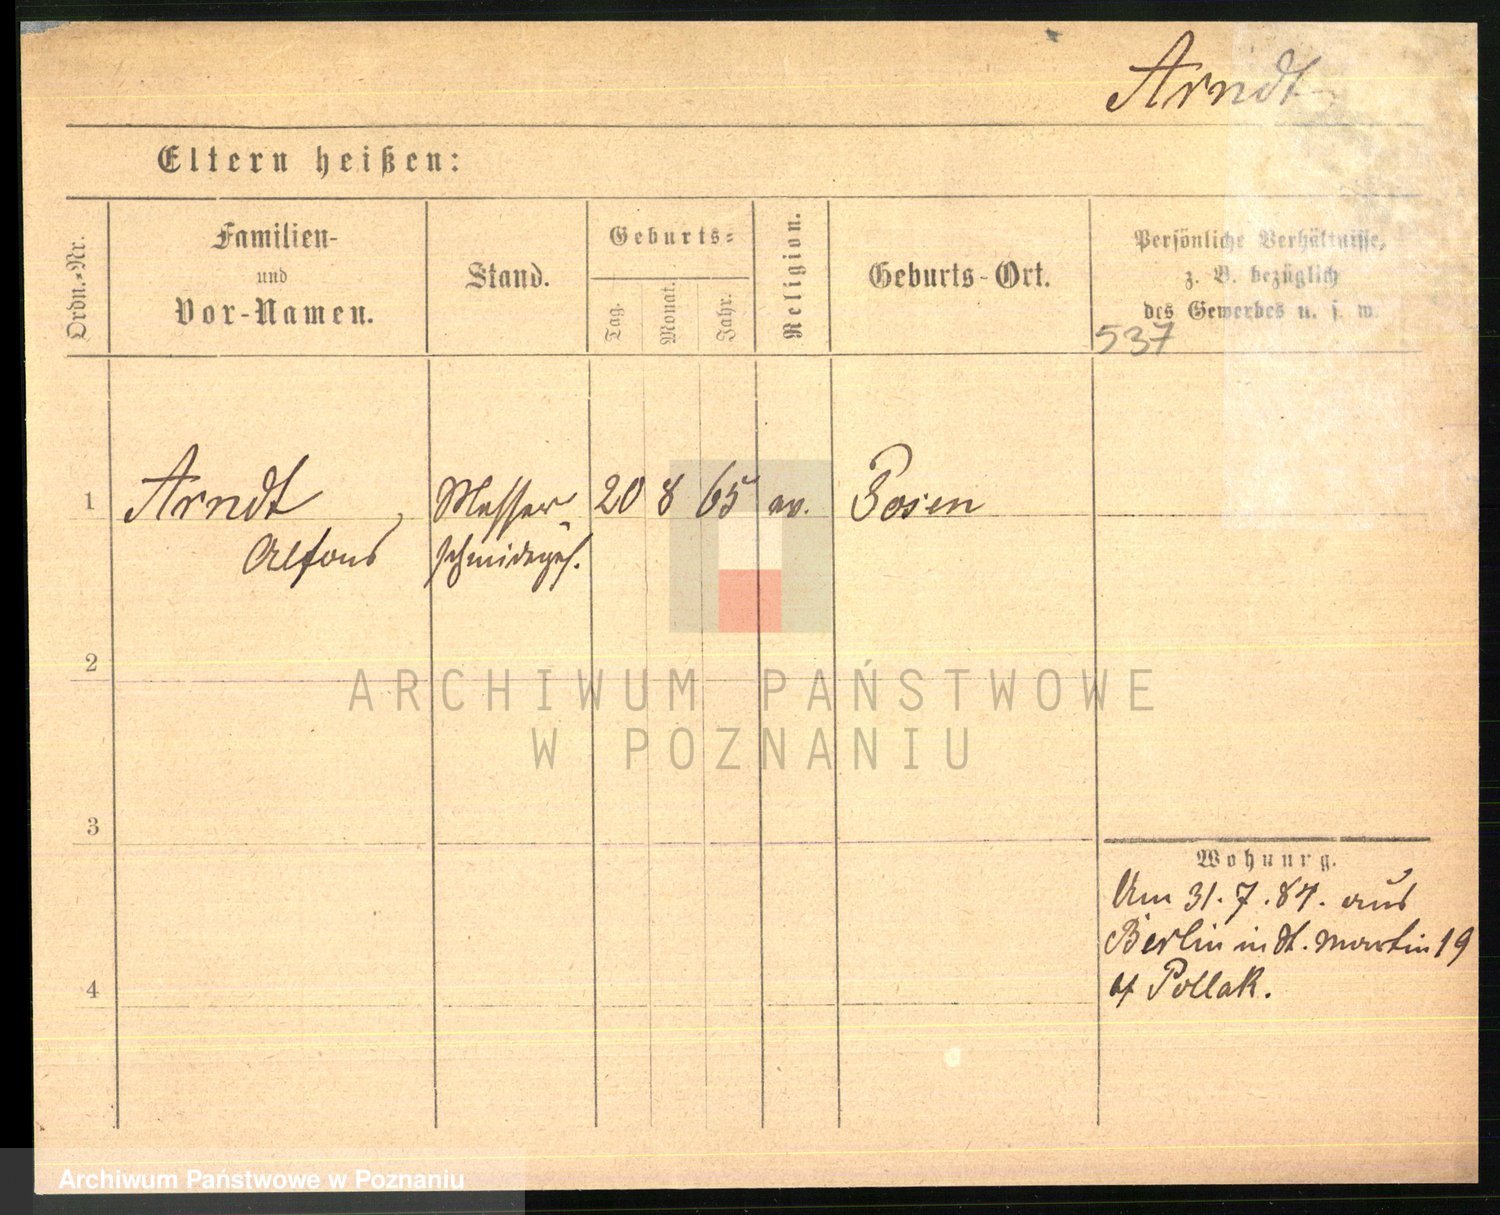 Arndt
Eltern heißen:
Ordn.-Nr.
Familien-
und
Vor-Namen.
Stand.
Geburts-
Tag.
Monat.
Jahr.
Religion.
Geburts-Ort.
Persönliche Verhältnisse,
z. B. bezüglich
des Gewerbes u. s. w.
537
1 Arndt, Messer- 20 8 65 ev. Posen
Alfons schmideges.
2
ARCHIWUM PAŃSTWOWE
W POZNANIU
3
Wohnung.
Um 31. 7. 84. aus
Berlin in St. Martin 19
4
Pollak.
Archiwum Państwowe w Poznaniu